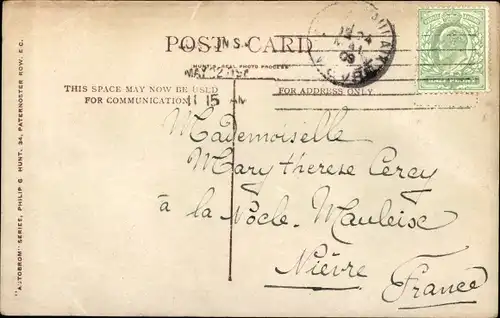 POST CARD
"AUTOBROM" SERIES, PHILIP G HUNT. 34, PATERNOSTER ROW, E.C.
THIS SPACE MAY NOW BE USED
FOR COMMUNICATION
FOR ADDRESS ONLY
11 15 AM
Mademoiselle
Mary therese Cercy
à la Nocle-Maulaise
Nièvre
France